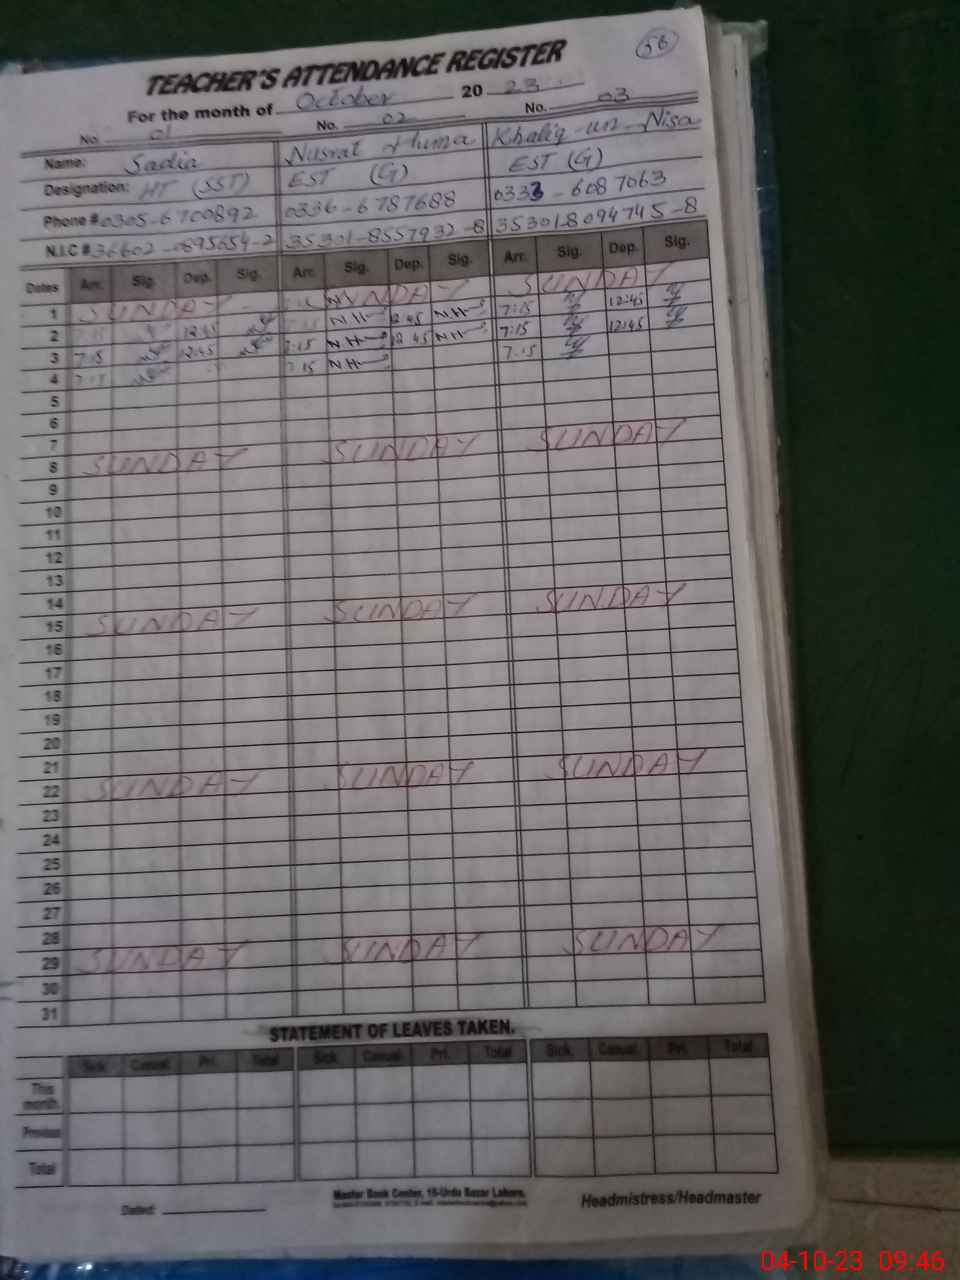 56
TEACHER'S ATTENDANCE REGISTER
For the month of October 20 23
No. 01 No. 02 No. 03
Name: Sadia Nusrat Huma Khaliq-un-Nisa
Designation: HT (SST) EST (G) EST (G)
Phone # 0305-6700892 0336-6787688 0333-6087063
N.I.C # 36602-0895654-2 35301-8557932-8 35301-8094745-8
Dates Arr. Sig. Dep. Sig. Arr. Sig. Dep. Sig. Arr. Sig. Dep. Sig.
1 SUNDAY SUNDAY SUNDAY
2 12:45 N.H 12 45 N.H 7:15 12:45
3 7:15 12:45 7:15 N.H 12 45 N.H 7:15 12:45
4 7:15 7:15 N.H 7:15
5
6
7
8 SUNDAY SUNDAY SUNDAY
9
10
11
12
13
14
15 SUNDAY SUNDAY SUNDAY
16
17
18
19
20
21
22 SUNDAY SUNDAY SUNDAY
23
24
25
26
27
28
29 SUNDAY SUNDAY SUNDAY
30
31
STATEMENT OF LEAVES TAKEN.
Sick. Casual. Pri. Total Sick. Casual. Pri. Total Sick. Casual. Pri. Total
This month.
Previous
Total
Master Book Center, 15-Urdu Bazar Lahore.
Dated: Headmistress/Headmaster
04-10-23 09:46